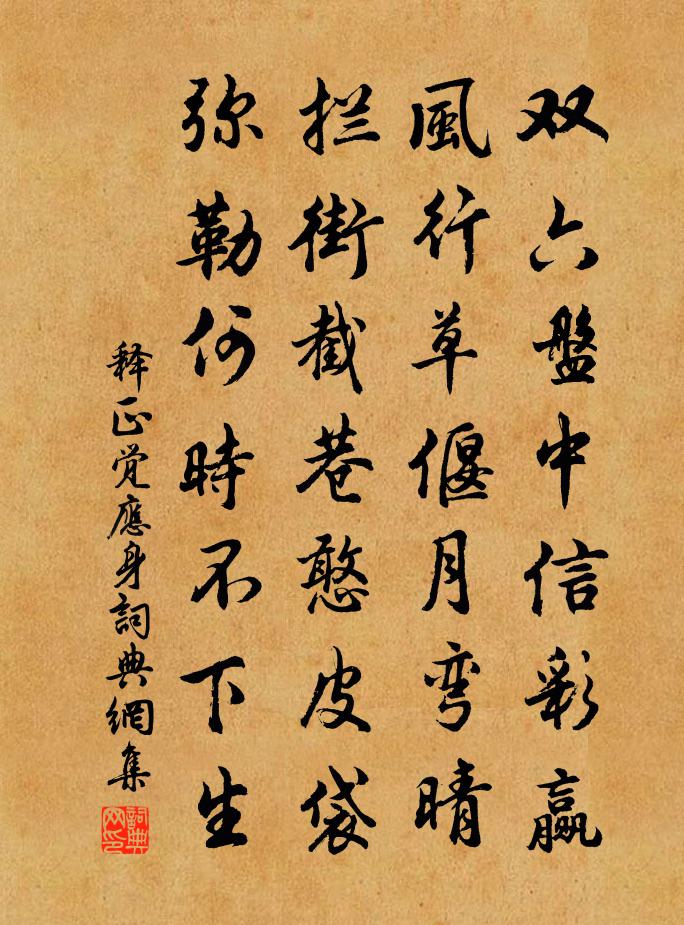 双六盤中信彩赢
風行草偃月弯晴
拦街截巷憨皮袋
弥勒何時不下生
释正觉應身詞典網集
詞典网印